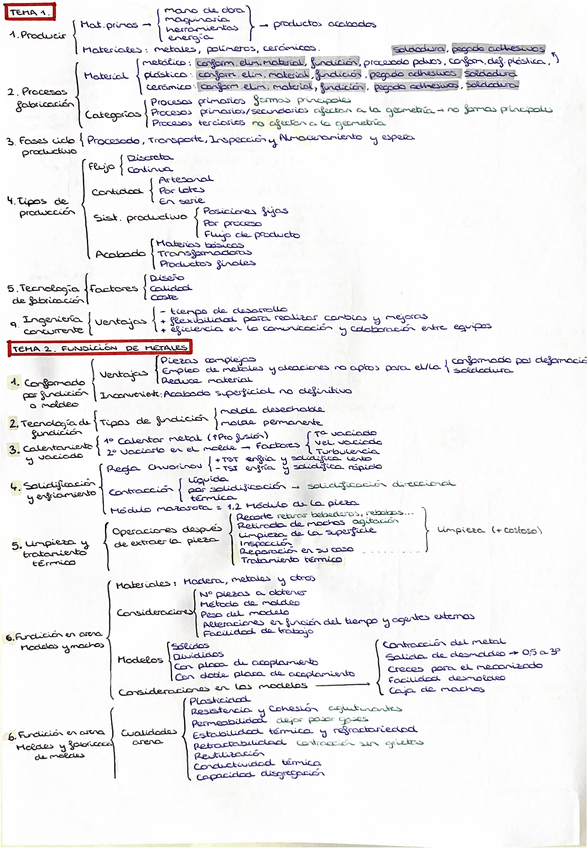 TEMA 1.
1. Producir
Mat. primas → mano de obra
maquinaria
herramientas
energía
→ productos acabados
Materiales: metales, polímeros, cerámicos.
2. Procesos fabricación
Material
metálico: conform. elim. material, fundición, procesado polvos, conform. def. plástica,
soldadura, pegado adhesivos
plástico: conform. elim. material, fundición, pegado adhesivos, soldadura
cerámico: conform. elim. material, fundición, pegado adhesivos, soldadura
Categorías
Procesos primarios formas principales
Procesos primarios/secundarios afectan a la geometría → no formas principales
Procesos terciarios no afectan a la geometría
3. Fases ciclo productivo
Procesado, Transporte, Inspección y Almacenamiento y espera
4. Tipos de producción
Flujo
Discreta
Continua
Cantidad
Artesanal
Por lotes
En serie
Sist. productivo
Posiciones fijas
Por proceso
Flujo de producto
Acabado
Materias básicas
Transformadoras
Productos finales
5. Tecnología de fabricación
Factores
Diseño
Calidad
Coste
9. Ingeniería concurrente
Ventajas
- tiempo de desarrollo
+ flexibilidad para realizar cambios y mejoras
+ eficiencia en la comunicación y colaboración entre equipos
TEMA 2. FUNDICIÓN DE METALES
1. Conformado por fundición o moldeo
Ventajas
Piezas complejas
Empleo de metales y aleaciones no aptos para el/la
conformado por deformación
soldadura
Reduce material
Inconveniente: Acabado superficial no definitivo
2. Tecnología de fundición
Tipos de fundición
molde desechable
molde permanente
3. Calentamiento y vaciado
1º Calentar metal (↑Pto fusión)
2º Vaciarlo en el molde → Factores
Tª vaciado
Vel. vaciado
Turbulencia
4. Solidificación y enfriamiento
Regla Chvorinov
+TST enfría y solidifica lento
-TST enfría y solidifica rápido
Contracción
líquida
por solidificación → solidificación direccional
térmica
Módulo mazarota = 1,2 Módulo de la pieza
5. Limpieza y tratamiento térmico
Operaciones después de extraer la pieza
Recorte retirar bebederos, rebabas...
Retirada de machos agitación
Limpieza de la superficie
Inspección
Reparación en su caso
Tratamiento térmico
Limpieza (+costoso)
6. Fundición en arena Modelos y machos
Materiales: Madera, metales y otros
Consideraciones
Nº piezas a obtener
Método de moldeo
Peso del modelo
Alteraciones en función del tiempo y agentes externos
Facilidad de trabajo
Modelos
Sólidos
Divididos
Con placa de acoplamiento
Con doble placa de acoplamiento
Consideraciones en los modelos →
Contracción del metal
Salida de desmoldeo → 0,5 a 3º
Creces para el mecanizado
Facilidad desmoldeo
Caja de machos
6. Fundición en arena Moldes y fabricación de moldes
Cualidades arena
Plasticidad
Resistencia y Cohesión aglutinantes
Permeabilidad dejar pasar gases
Estabilidad térmica y refractariedad
Retractabilidad contracción sin grietas
Reutilización
Conductividad térmica
Capacidad disgregación